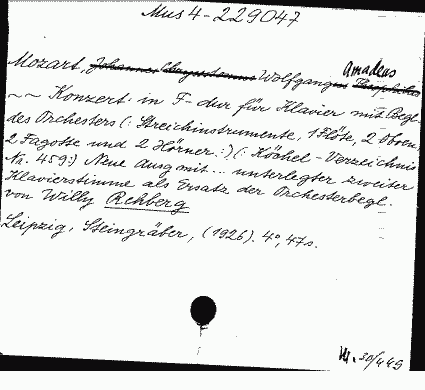 Mus 4-229047
Amadeus
Mozart, Johannes Chrysostomus Wolfgangus Theophilus
~ ~ Konzert in F-dur für Klavier mit Begl.
des Orchesters (: Streichinstrumente, 1 Flöte, 2 Oboen,
2 Fagotte und 2 Hörner :) (: Köchel-Verzeichnis
Nr. 459:) Neue Ausg mit... unterlegter zweiter
Klavierstimme als Ersatz der Orchesterbegl.
von Willy Rehberg
Leipzig, Steingräber, (1926). 4°, 47 s.
30/445